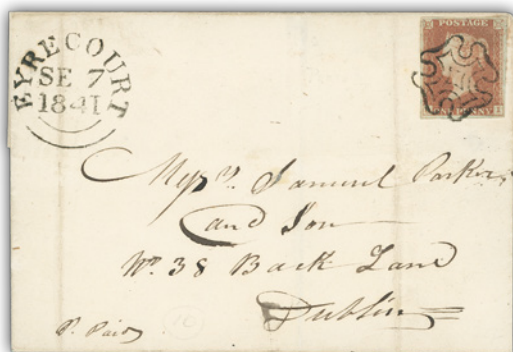 EYRECOURT
SE 7
1841
POSTAGE
ONE PENNY
Messrs. Samuel Parker
and Son
No. 38 Back Lane
Dublin
P. Paid